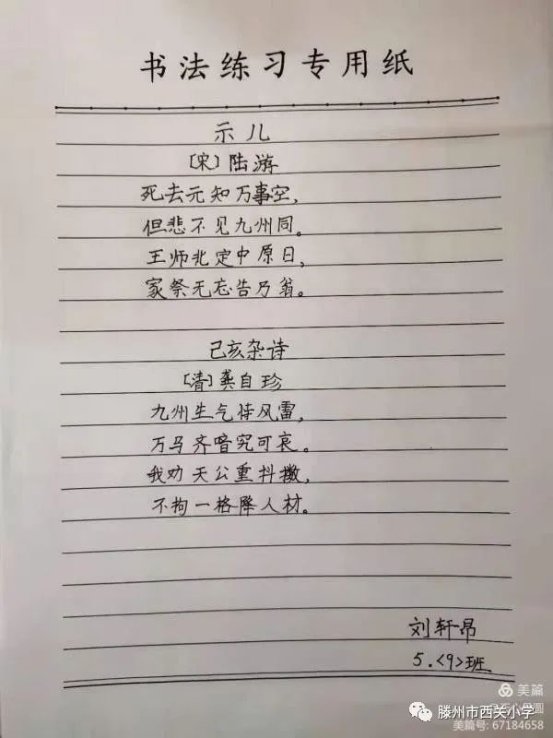 书法练习专用纸
示儿
[宋]陆游
死去元知万事空,
但悲不见九州同。
王师北定中原日,
家祭无忘告乃翁。
己亥杂诗
[清]龚自珍
九州生气恃风雷,
万马齐喑究可哀。
我劝天公重抖擞,
不拘一格降人材。
刘轩昂
5.<9>班
美篇
滕州市西关小学
美篇号:67184658